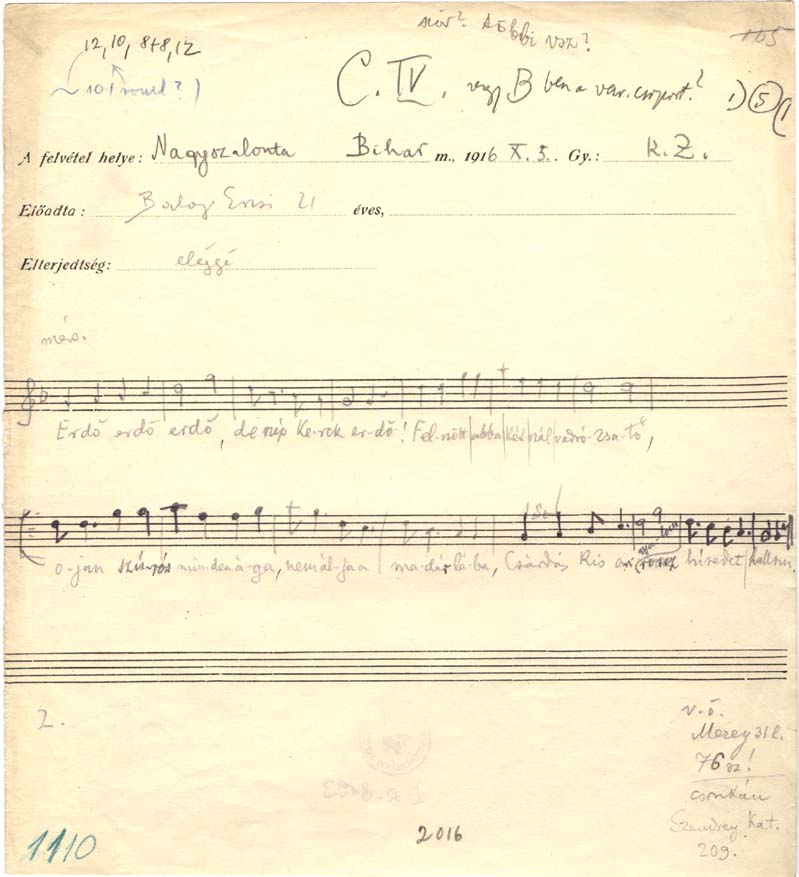 többi vsz? 105
12, 10, 8+8, 12
10
C. IV. vagy B ben a var. csoport? 1) 5 (1
A felvétel helye: Nagyszalonta Bihar m., 1916 X. 5. Gy.: K. Z.
Előadta: Balog Erzsi 21 éves,
Elterjedtség: eléggé
mérs.
Erdő erdő erdő, de szép kerek er-dő! Fel-nőtt abba két szál vadró-zsa-tő,
o-jan szú-rós minden á-ga, nem áll ja a ma-dár lá-ba, Csárdás Kis rossz híredet hallom.
2.
v. ö.
Merey 31 l.
76 sz!
csonkán
Szendrey Kat.
209.
1110
2016